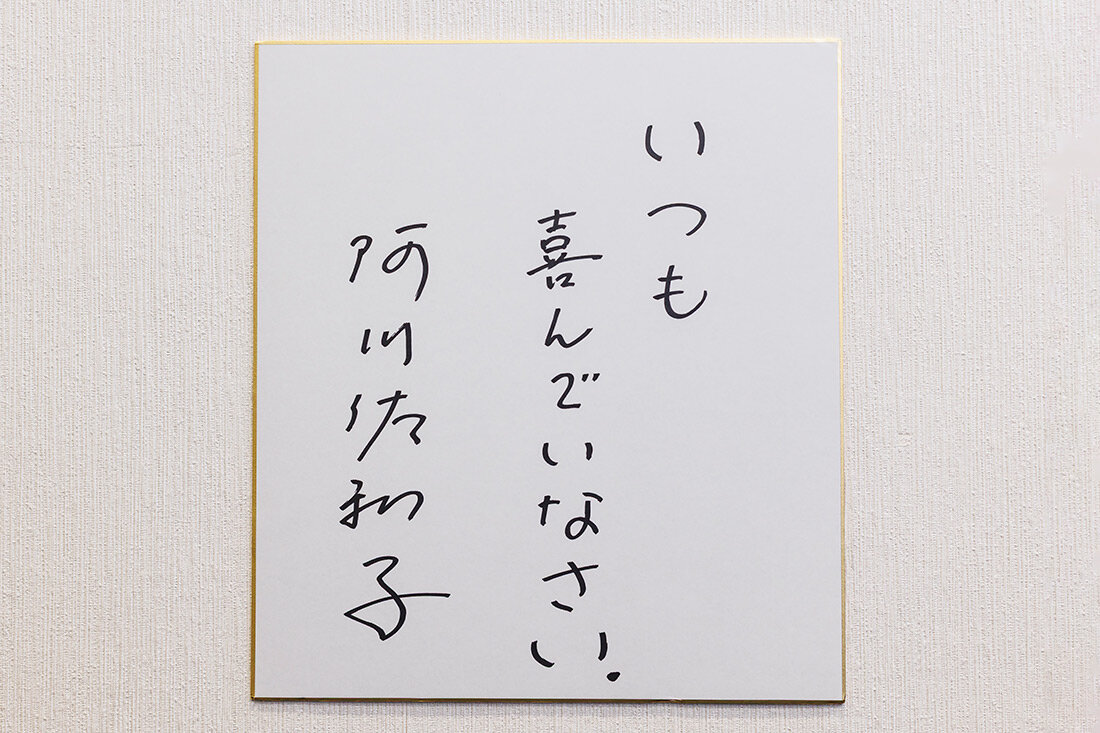 いつも
喜んでいなさい!
阿川佐和子